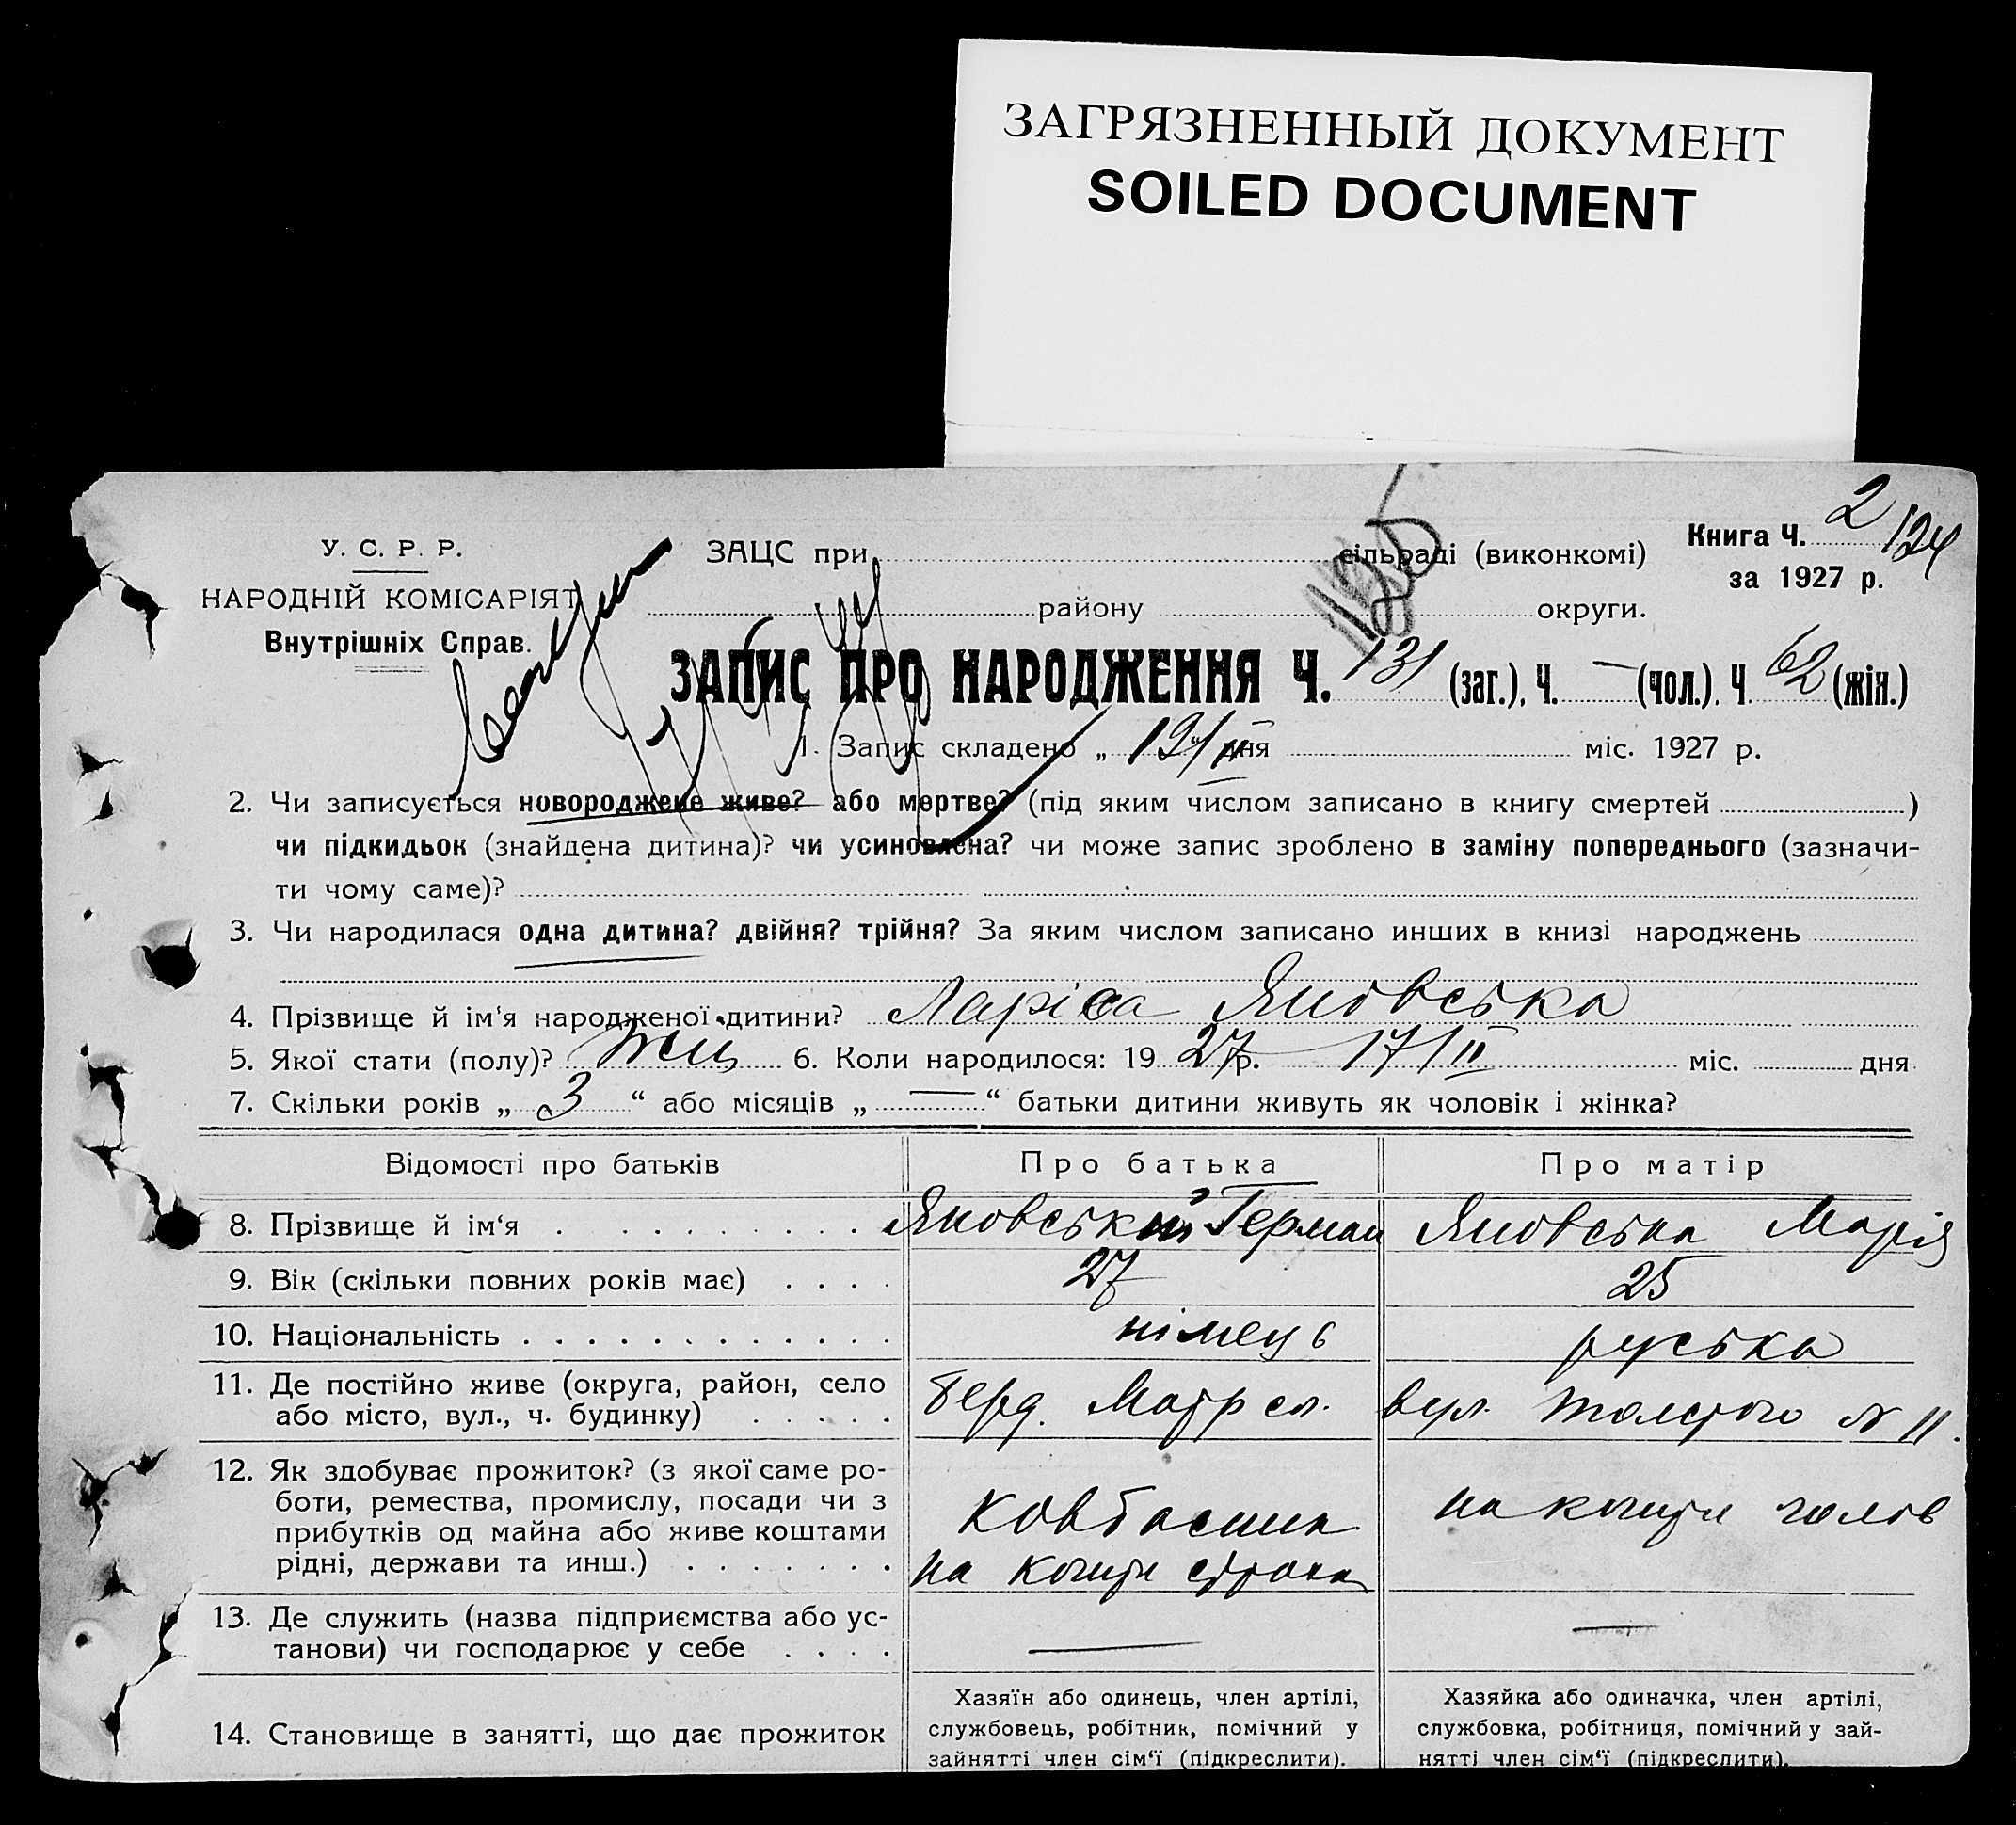 ЗАГРЯЗНЕННЫЙ ДОКУМЕНТ
SOILED DOCUMENT
Книга Ч. 2 124
за 1927 р.
У. С. Р. Р.
НАРОДНІЙ КОМІСАРІЯТ
Внутрішніх Справ.
ЗАЦС при сільраді (виконкомі)
району округи.
ЗАПИС ПРО НАРОДЖЕННЯ Ч. 131 (заг.), Ч. — (чол.). Ч. 62 (жін.)
1. Запис складено „ 19/II дня міс. 1927 р.
2. Чи записується новороджене живе? або мертве? (під яким числом записано в книгу смертей )
чи підкидьок (знайдена дитина)? чи усиновлена? чи може запис зроблено в заміну попереднього (зазначи-
ти чому саме)?
3. Чи народилася одна дитина? двійня? трійня? За яким числом записано инших в книзі народжень
4. Прізвище й ім'я народженої дитини? Ларіса Яновська
5. Якої стати (полу)? жін 6. Коли народилося: 19 27 р. 17/II міс. дня
7. Скільки років „ 3 “ або місяців „ — “ батьки дитини живуть як чоловік і жінка?
Відомості про батьків Про батька Про матір
8. Прізвище й ім‘я . Яновський Герман Яновська Марія
9. Вік (скільки повних років має) 27 25
10. Національність німець руська
11. Де постійно живе (округа, район, село
або місто, вул., ч. будинку)
Берд. Матр сл. вул. Толстого № 11.
12. Як здобуває прожиток? (з якої саме ро-
боти, ремества, промислу, посади чи з
прибутків од майна або живе коштами
рідні, держави та инш.)
Ковбасник на кошти чолов
на кошти
13. Де служить (назва підприємства або ус-
танови) чи господарює у себе — —
14. Становище в занятті, що дає прожиток
Хазяїн або одинець, член артілі,
службовець, робітник, помічний у
зайнятті член сім‘ї (підкреслити).
Хазяйка або одиначка, член артілі,
службовка, робітниця, помічний у зай-
нятті член сім‘ї (підкреслити).